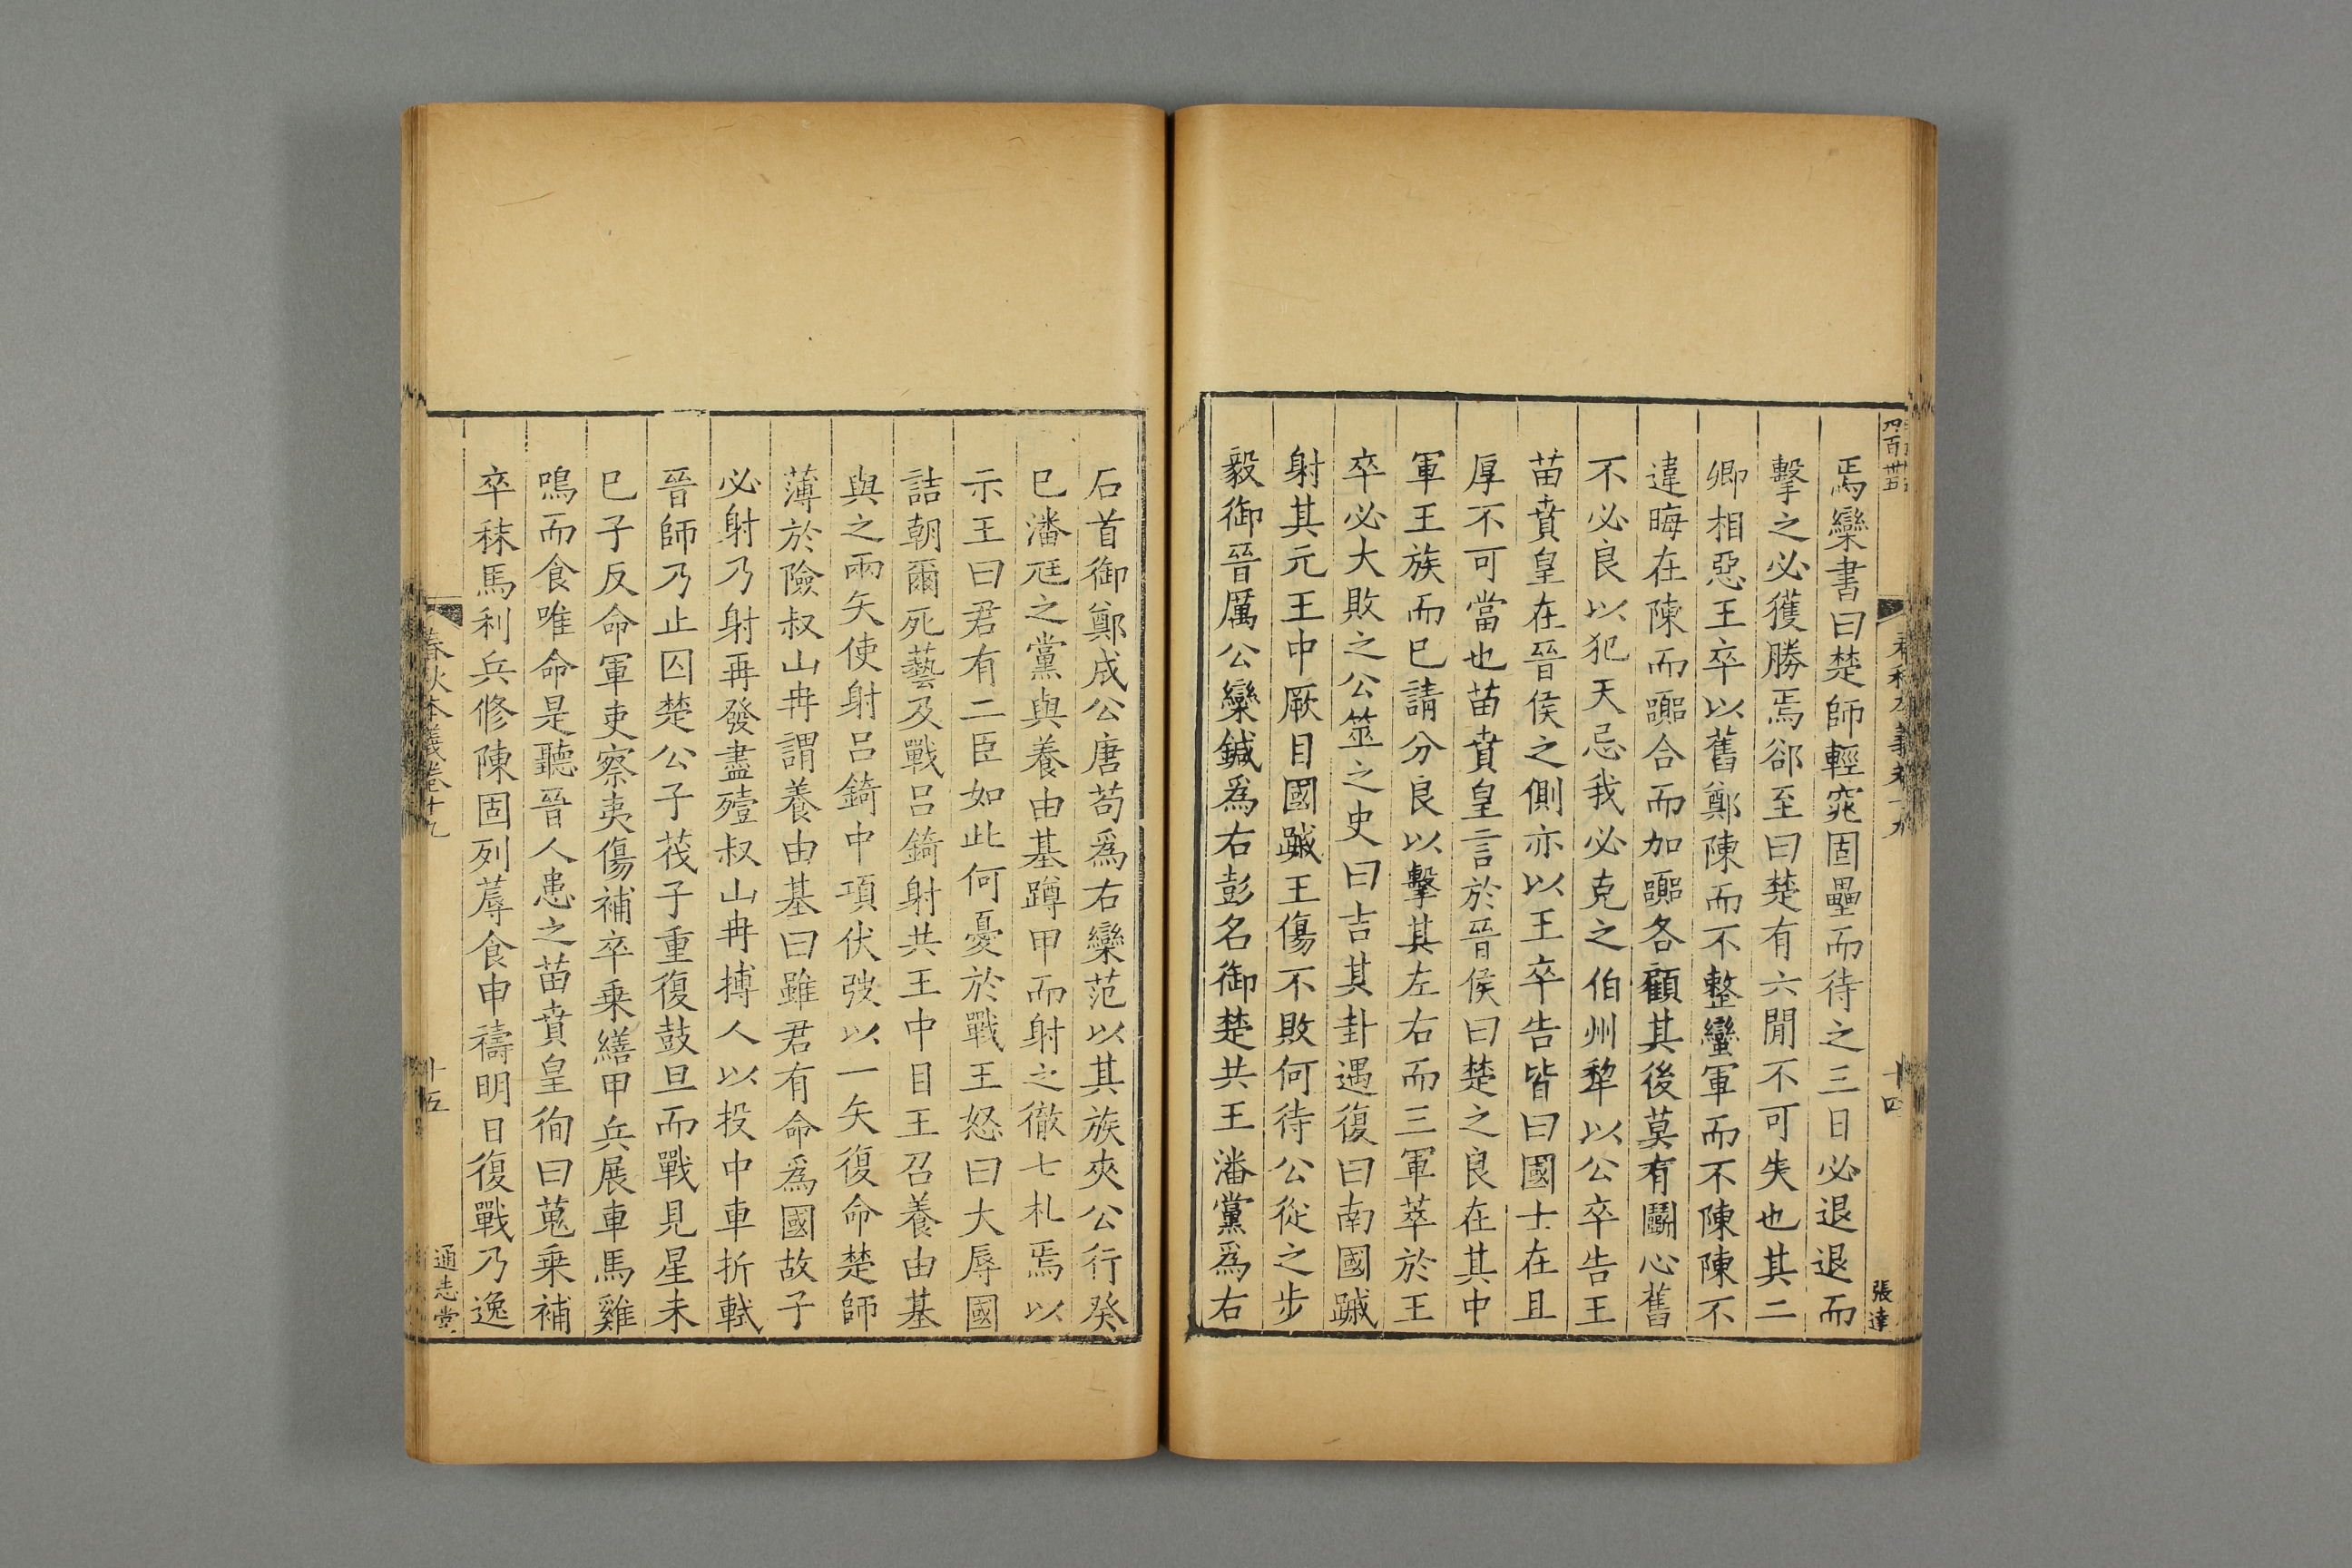 四百卌五
春秋本義卷十九
十四
張達
焉欒書曰楚師輕窕固壘而待之三日必退退而
擊之必獲勝焉郤至曰楚有六閒不可失也其二
卿相惡王卒以舊鄭陳而不整蠻軍而不陳陳不
違晦在陳而嘂合而加嘂各顧其後莫有鬭心舊
不必良以犯天忌我必克之伯州犂以公卒告王
苗賁皇在晉侯之側亦以王卒告皆曰國士在且
厚不可當也苗賁皇言於晉侯曰楚之良在其中
軍王族而已請分良以擊其左右而三軍萃於王
卒必大敗之公筮之史曰吉其卦遇復曰南國䠞
射其元王中厥目國䠞王傷不敗何待公從之步
毅御晉厲公欒鍼爲右彭名御楚共王潘黨爲右
石首御鄭成公唐苟爲右欒范以其族夾公行癸
巳潘尫之黨與養由基蹲甲而射之徹七札焉以
示王曰君有二臣如此何憂於戰王怒曰大辱國
詰朝爾死藝及戰呂錡射共王中目王召養由基
與之兩矢使射呂錡中項伏弢以一矢復命楚師
薄於險叔山冉謂養由基曰雖君有命爲國故子
必射乃射再發盡殪叔山冉搏人以投中車折軾
晉師乃止囚楚公子茷子重復鼓旦而戰見星未
已子反命軍吏察夷傷補卒乗繕甲兵展車馬雞
鳴而食唯命是聽晉人患之苗賁皇徇曰蒐乗補
卒秣馬利兵修陳固列蓐食申禱明日復戰乃逸
春秋本義卷十九
十五
通志堂